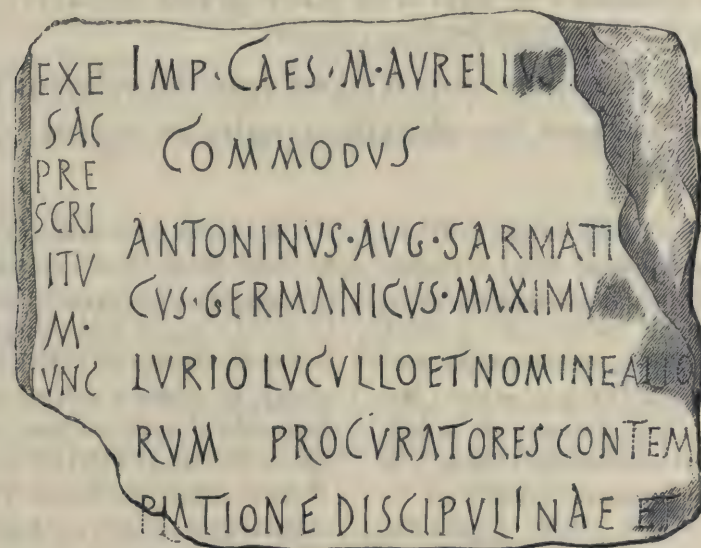 EXE
SAC
PRE
SCRI
ITV
M·
IVNC
IMP·CAES·M·AVRELIVS
COMMODVS
ANTONINVS·AVG·SARMATI
CVS·GERMANICVS·MAXIMV
LVRIO LVCVLLO ET NOMINE ALIO
RVM PROCVRATORES CONTEM
PLATIONE DISCIPVLINAE ET